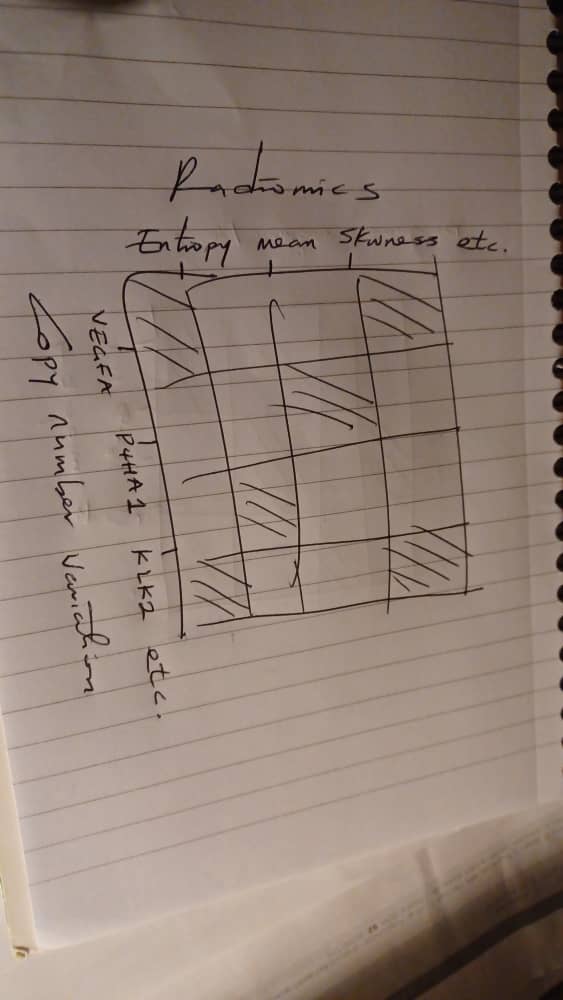 Radiomics
Entropy mean Skwness etc.
VEGFA P4HA1 KLK2 etc.
Copy number Variation